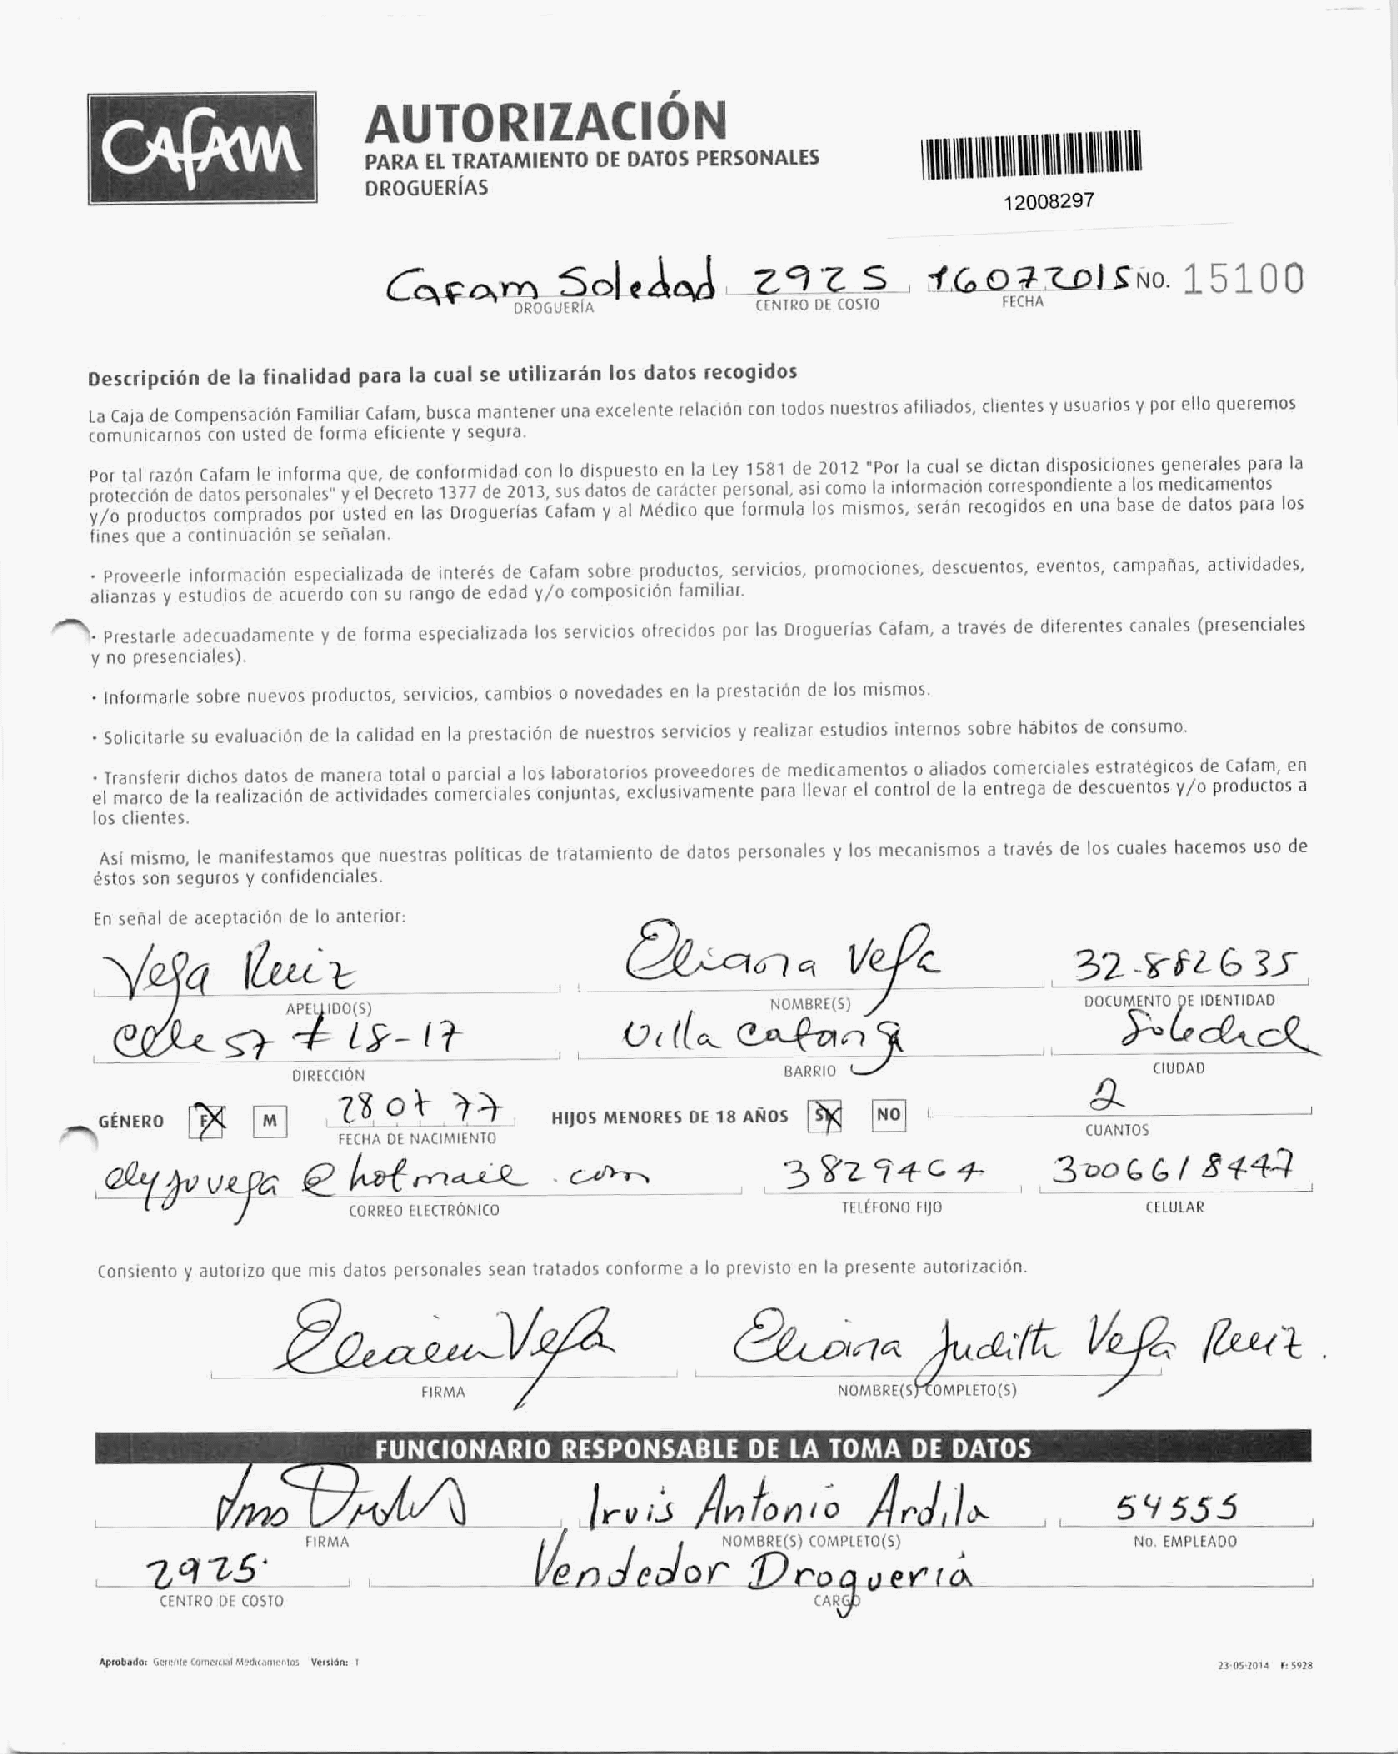 CAFAM
AUTORIZACIÓN
PARA EL TRATAMIENTO DE DATOS PERSONALES
DROGUERÍAS
12008297
Cafam Soledad 2925 16072015 NO. 15100
DROGUERÍA CENTRO DE COSTO FECHA
Descripción de la finalidad para la cual se utilizarán los datos recogidos
La Caja de Compensación Familiar Cafam, busca mantener una excelente relación con todos nuestros afiliados, clientes y usuarios y por ello queremos
comunicarnos con usted de forma eficiente y segura.
Por tal razón Cafam le informa que, de conformidad con lo dispuesto en la Ley 1581 de 2012 "Por la cual se dictan disposiciones generales para la
protección de datos personales" y el Decreto 1377 de 2013, sus datos de carácter personal, asi como la información correspondiente a los medicamentos
y/o productos comprados por usted en las Droguerías Cafam y al Médico que formula los mismos, serán recogidos en una base de datos para los
fines que a continuación se señalan.
· Proveerle información especializada de interés de Cafam sobre productos, servicios, promociones, descuentos, eventos, campañas, actividades,
alianzas y estudios de acuerdo con su rango de edad y/o composición familiar.
· Prestarle adecuadamente y de forma especializada los servicios ofrecidos por las Droguerías Cafam, a través de diferentes canales (presenciales
y no presenciales).
· Informarle sobre nuevos productos, servicios, cambios o novedades en la prestación de los mismos.
· Solicitarle su evaluación de la calidad en la prestación de nuestros servicios y realizar estudios internos sobre hábitos de consumo.
· Transferir dichos datos de manera total o parcial a los laboratorios proveedores de medicamentos o aliados comerciales estratégicos de Cafam, en
el marco de la realización de actividades comerciales conjuntas, exclusivamente para llevar el control de la entrega de descuentos y/o productos a
los clientes.
Así mismo, le manifestamos que nuestras políticas de tratamiento de datos personales y los mecanismos a través de los cuales hacemos uso de
éstos son seguros y confidenciales.
En señal de aceptación de lo anterior:
Vega Ruiz Eliana Vega 32.882635
APELLIDO(S) NOMBRE(S) DOCUMENTO DE IDENTIDAD
Calle 57 # 18-17 Villa Soledad
DIRECCIÓN BARRIO CIUDAD
GÉNERO F M 280777 HIJOS MENORES DE 18 AÑOS SI NO 2
FECHA DE NACIMIENTO CUANTOS
elyjuvega@hotmail.com 3829464 3006618447
CORREO ELECTRÓNICO TELÉFONO FIJO CELULAR
Consiento y autorizo que mis datos personales sean tratados conforme a lo previsto en la presente autorización.
Eliana Vega Eliana Judith Vega Ruiz.
FIRMA NOMBRE(S) COMPLETO(S)
FUNCIONARIO RESPONSABLE DE LA TOMA DE DATOS
Irvis Antonio Ardila 54555
FIRMA NOMBRE(S) COMPLETO(S) No. EMPLEADO
2925 Vendedor Droguería
CENTRO DE COSTO CARGO
Aprobado: Gerente Comercial Medicamentos Versión: 1
23-05-2014 F: 5928